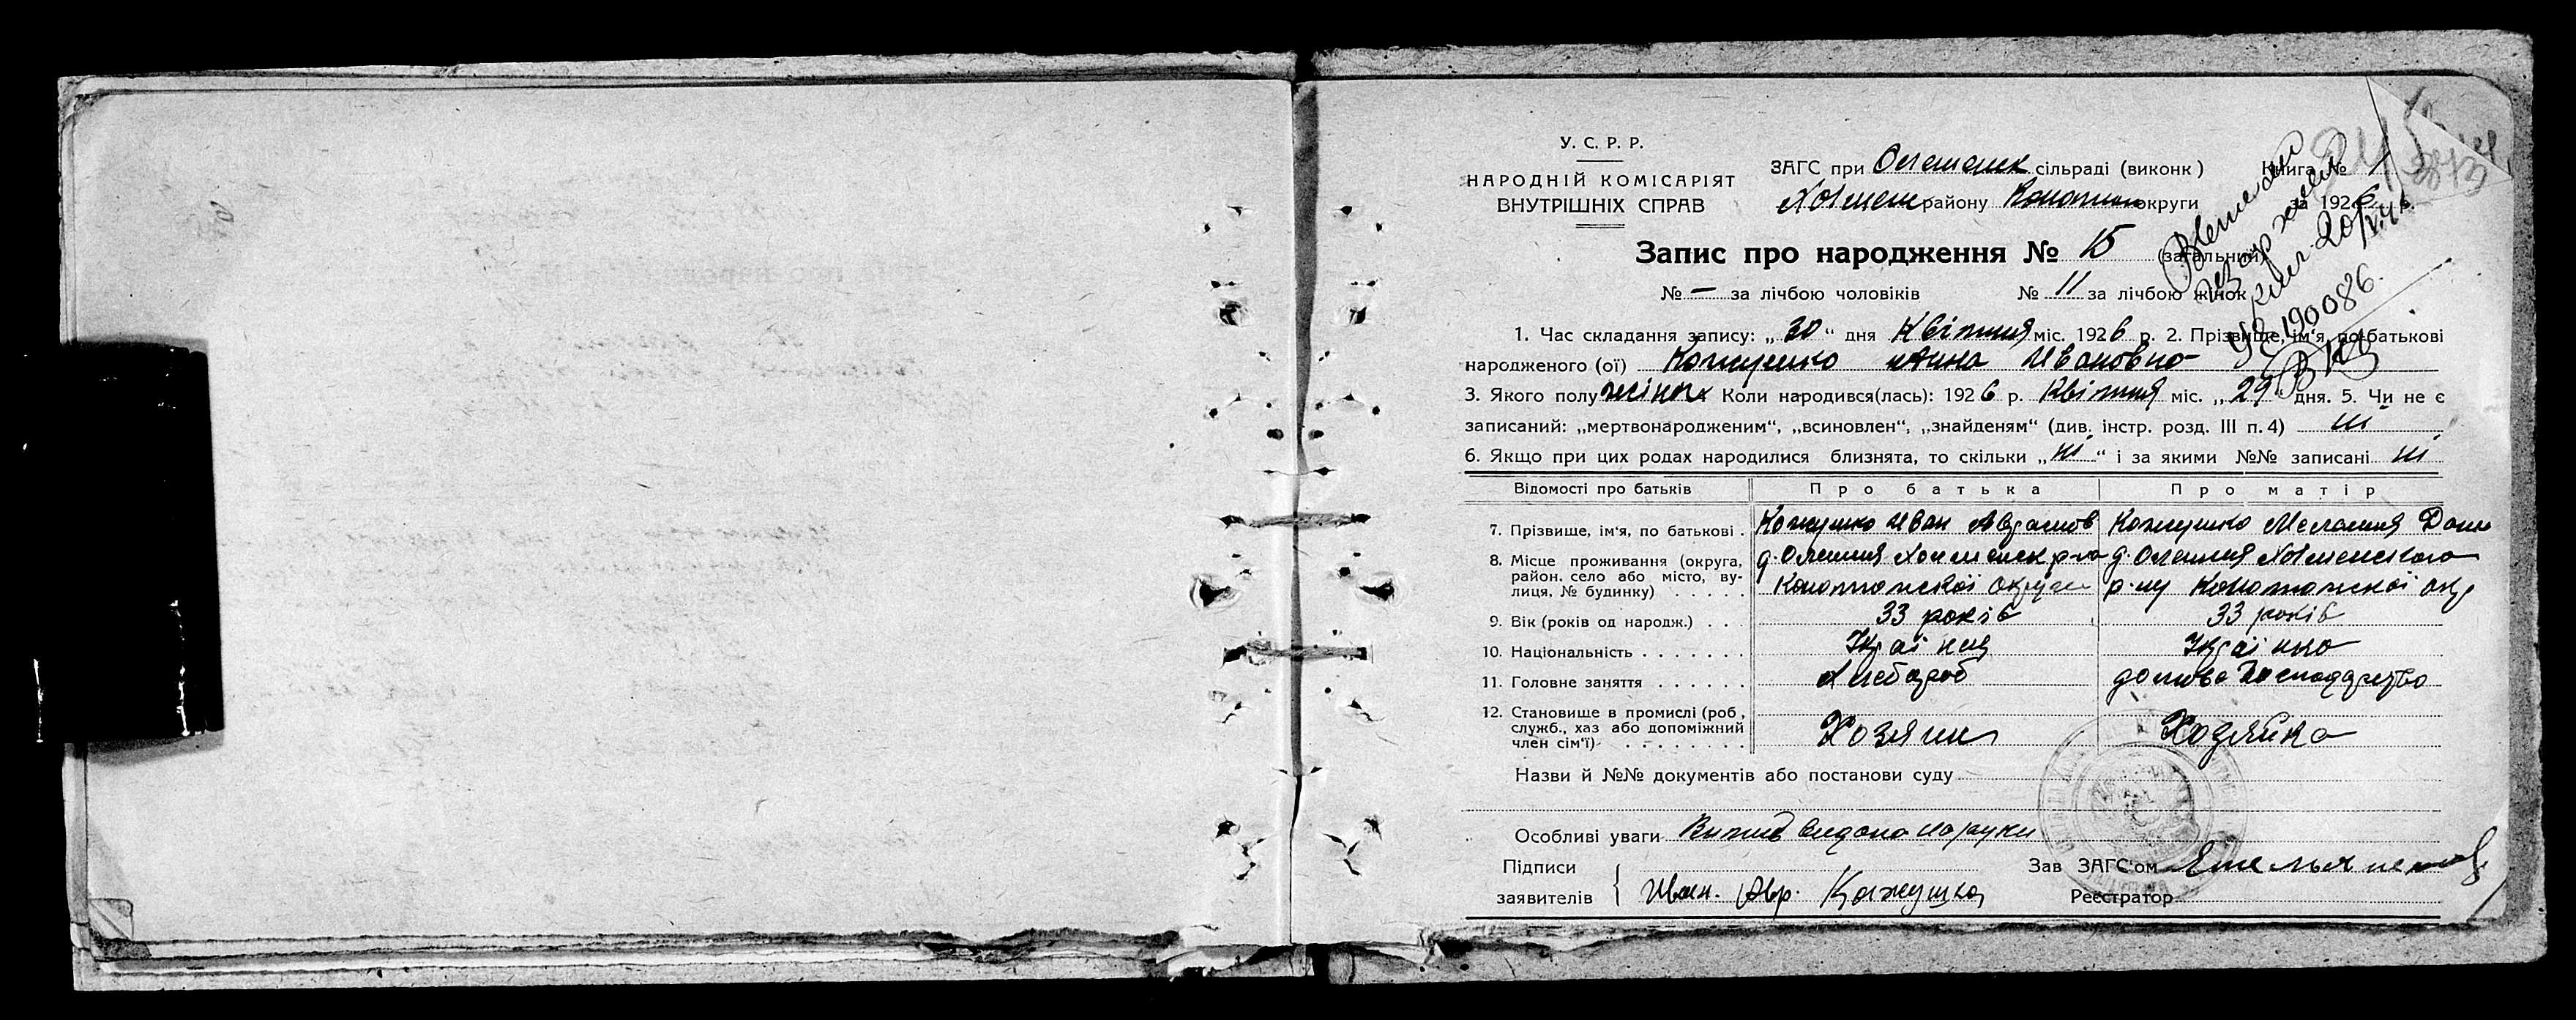 У. С. Р. Р.
НАРОДНІЙ КОМІСАРІЯТ
ВНУТРІШНІХ СПРАВ
ЗАГС при Олешенск сільраді (виконк) Книга № 1
Хотмен району Конотоп округи за 1926 р.
Запис про народження № 15 (загальний)
№ — за лічбою чоловіків № 11 за лічбою жінок
УЕ 190086.
1. Час складання запису: „30“ дня Квітня міс. 1926 р. 2. Прізвище, ім‘я, по-батькові
народженого (ої) Кожушко Анна Ивановна
3. Якого полу жіноч Коли народився(лась): 1926 р. Квітня міс. „29“ дня. 5. Чи не є
записаний: „мертвонародженим“, „всиновлен“, „знайденям“ (див. інстр. розд. III п. 4) ні
6. Якщо при цих родах народилися близнята, то скільки „ні“ і за якими №№ записані ні
Відомості про батьків Про батька Про матір
7. Прізвище, ім‘я, по батькові . Кожушко Иван Аврамов Кожушко Мелания Дани
8. Місце проживання (округа, район, село або місто, вулиця, № будинку) . . . . .
д. Олешня Хотменск р-на д. Олешня Хотменського
Конотопскої округи р-ну Конотопскої окр
9. Вік (років од народж.) . . . 33 років 33 років
10. Національність . . . . . . . Українц Українка
11. Головне заняття . . . . . . Хлебороб домове господарство
12. Становище в промислі (роб., служб., хаз або допоміжний член сім‘ї) . . . . . . . . Хозяин Хозяйка
Назви й №№ документів або постанови суду
Особливі уваги Витяг видана на руки
Підписи
заявителів Иван. Авр. Кожушко
Зав ЗАГС‘ом Емельяненко
Реєстратор